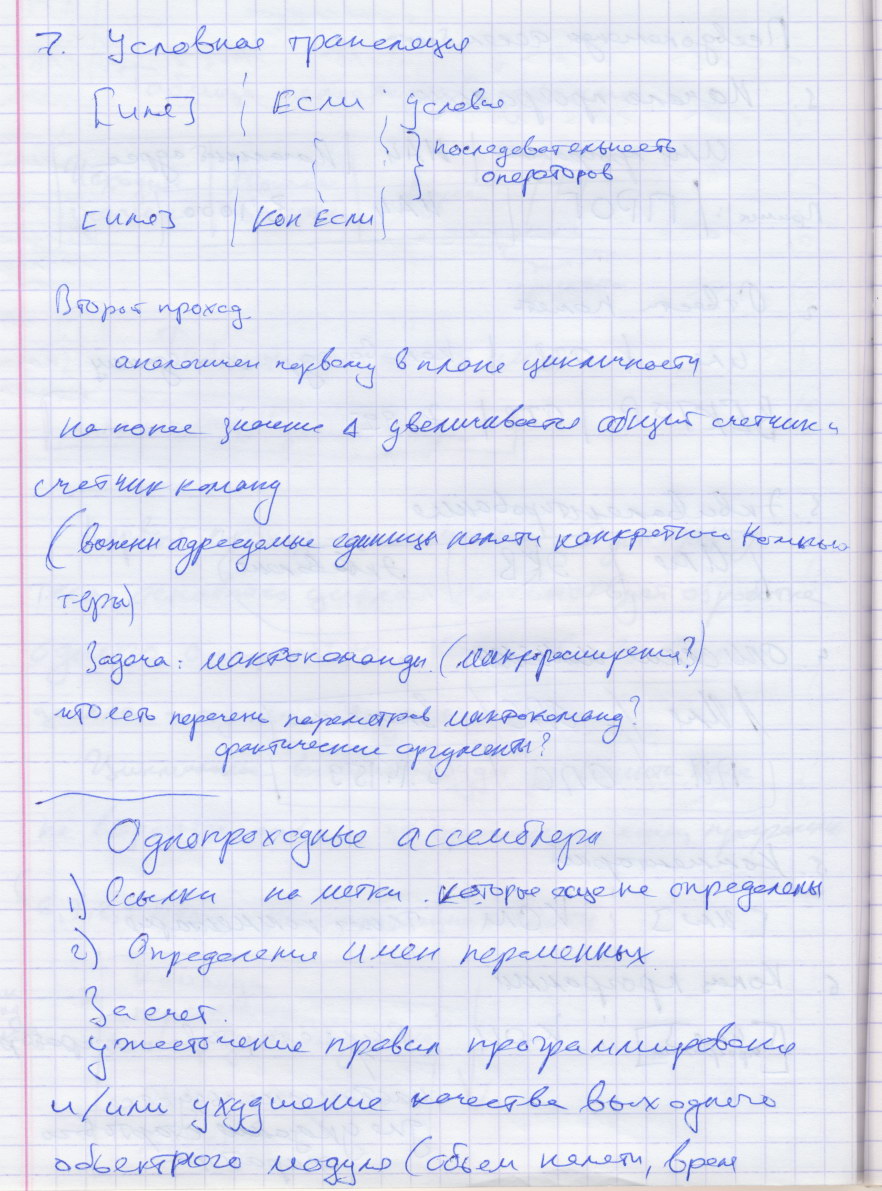 7. Условная трансляция
[имя] Если условие
последовательность
операторов
[имя] Кон Если
Второй проход
аналогичен первому в плане цикличности
на какое значение Δ увеличивается общий счетчик и
счетчик команд
(важны адресуемые единицы памяти конкретного Компью
тера)
Задача: макрокоманды. (макрорасширения?)
что есть перечень параметров макрокоманд?
фактические аргументы?
Однопроходные ассемблеры
1) Ссылки на метки которые еще не определены
2) Определения имен переменных
За счет.
ужесточение правил программирования
и/или ухудшение качества выходного
объектного модуля (объем памяти, время